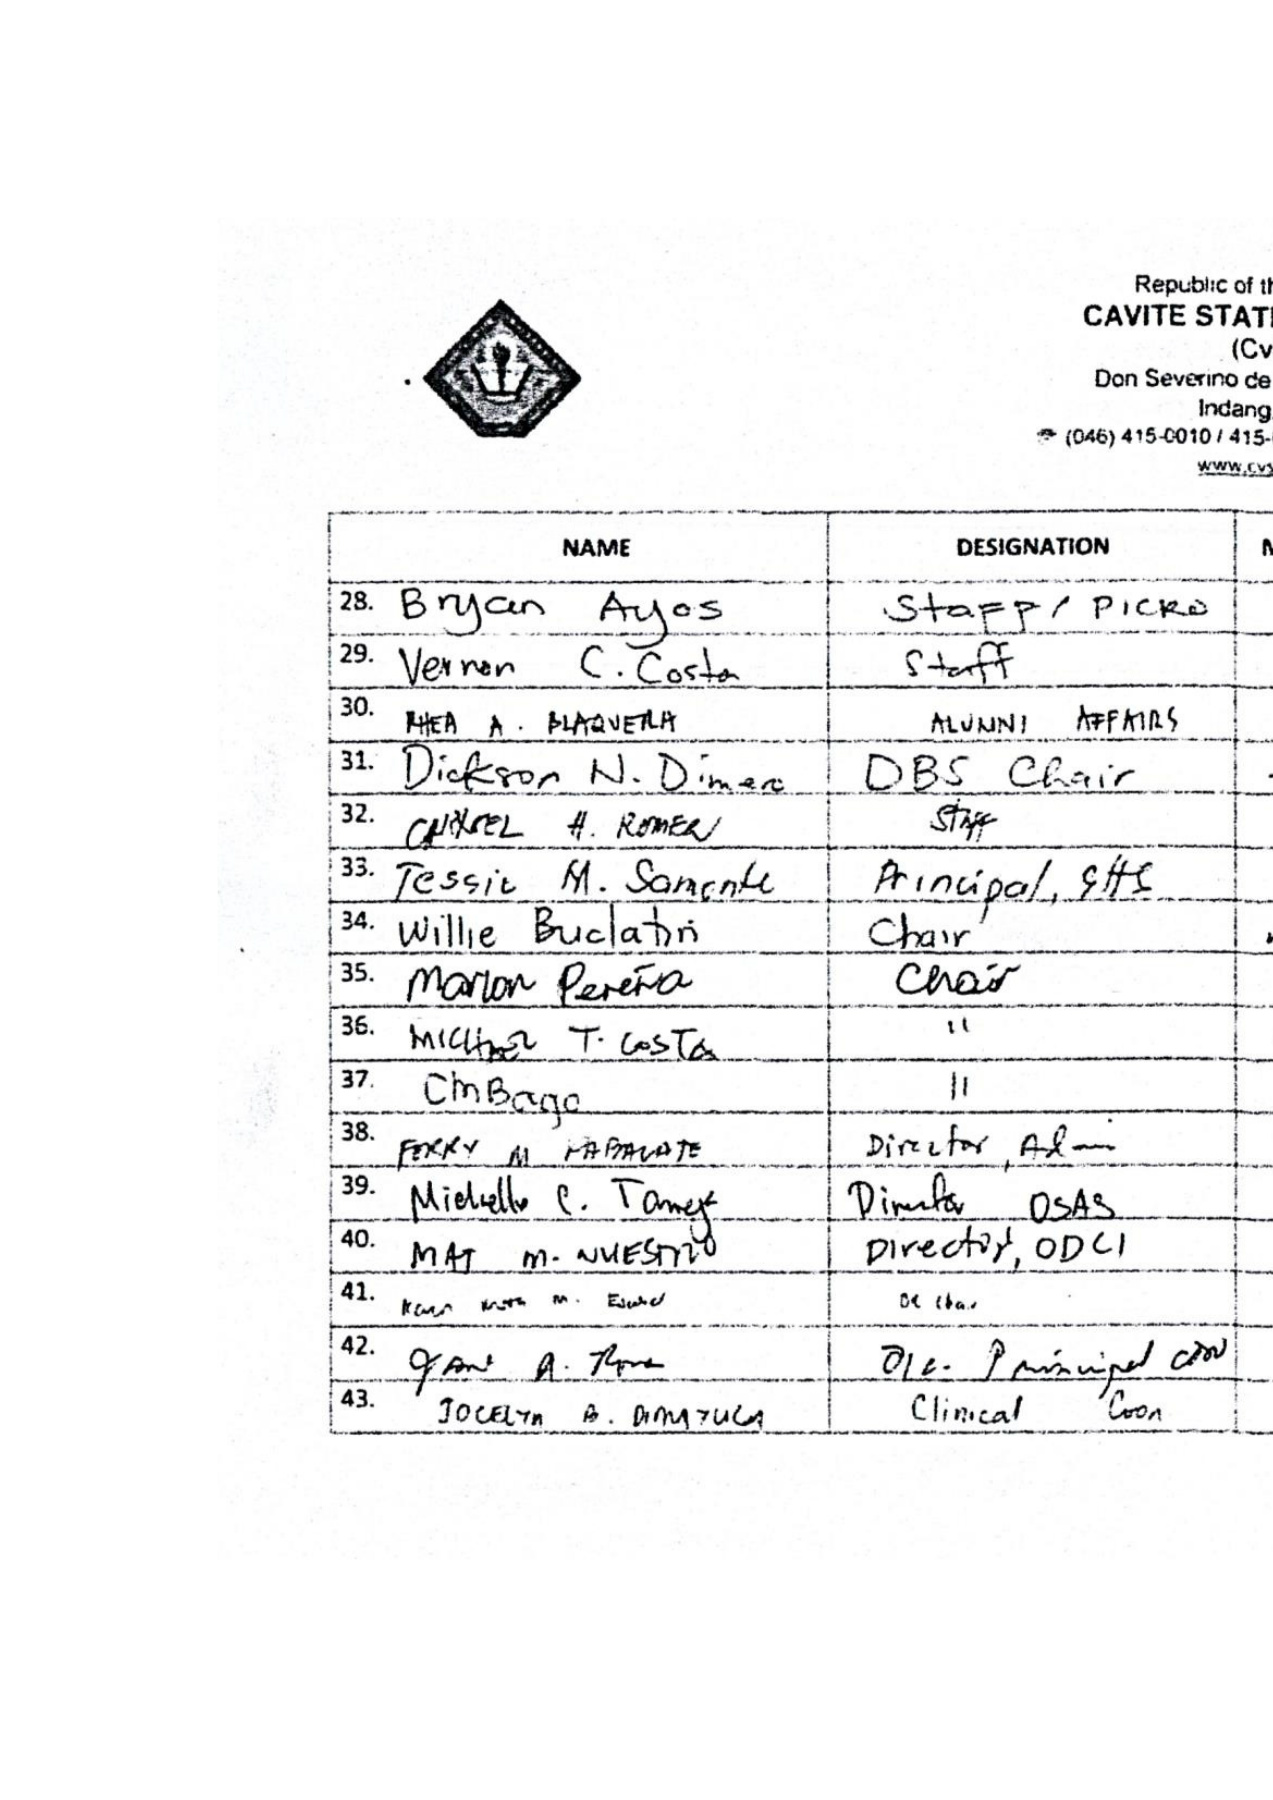 Republic of th
CAVITE STATE
(Cv
Don Severino de
Indang,
(046) 415-0010 / 415-
www.cvs
NAME DESIGNATION
28. Bryan Ayos Staff / PICRO
29. Vernon C. Costa Staff
30. RHEA A. BLAQUERA ALUNNI AFFAIRS
31. Dickson N. Dimero DBS Chair
32. H. ROMEN Staff
33. Tessie M. Samonte Principal,
34. Willie Buclatin Chair
35. Marlon Pereña Chair
36. MICHAEL T. COSTA "
37. "
38. FERRY M Director, Admi
39. Michelle C. Director OSAS
40. MAT M. NUESTRO Director, ODCI
41. M.
42. A. Principal
43. JOCELYN B. DIMAYUGA Clinical Coor